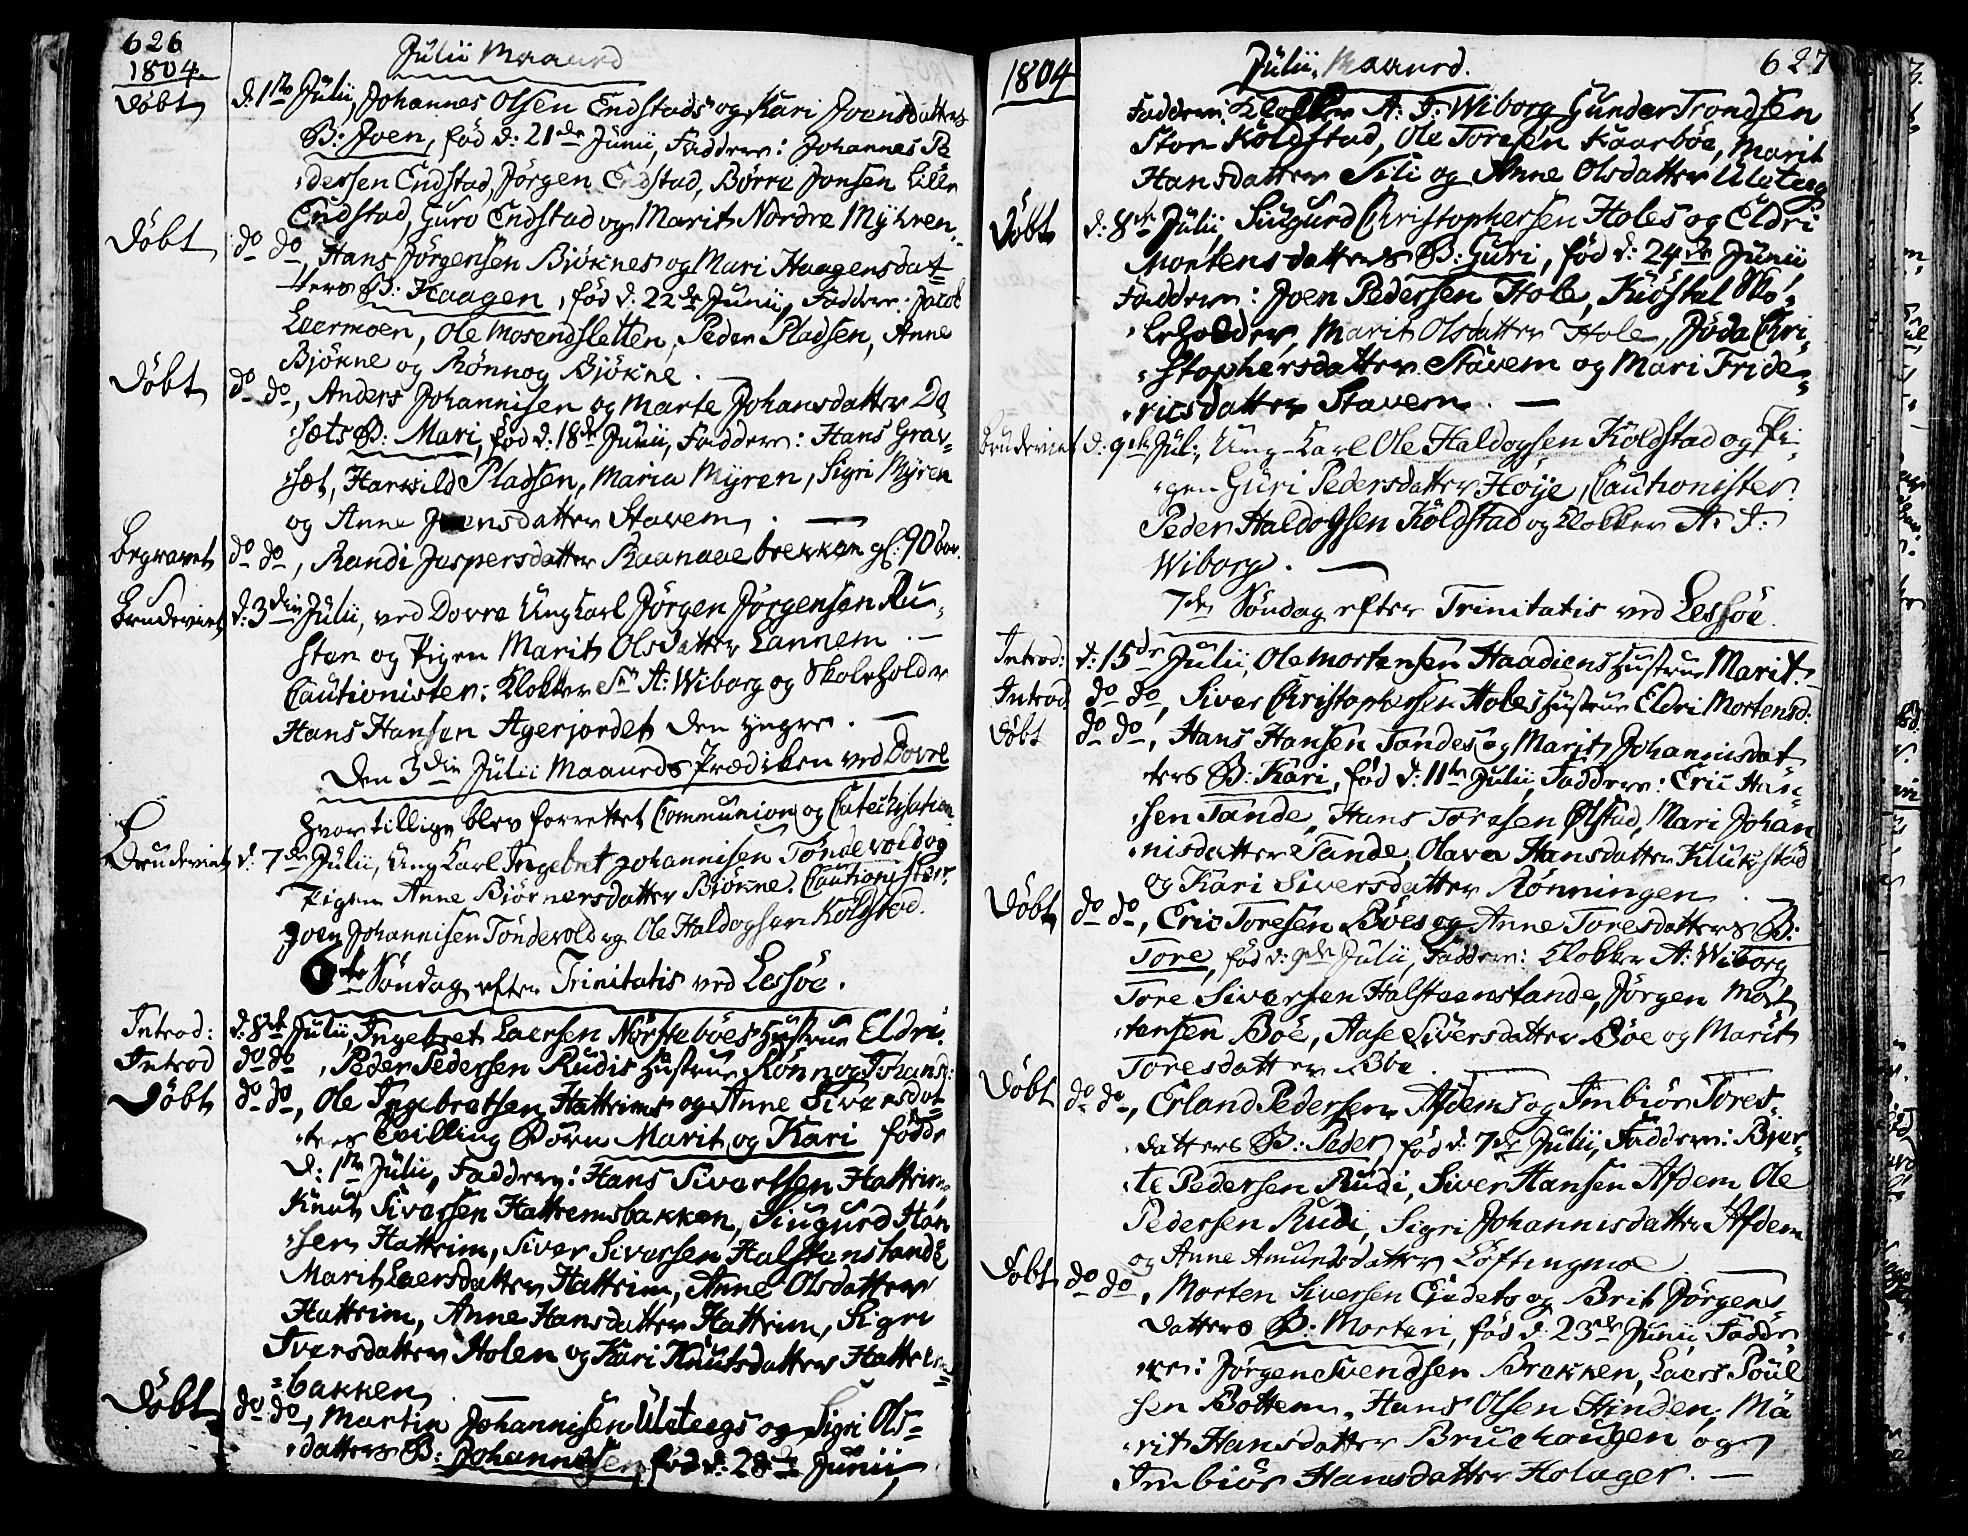 626
1804.
Julii Maaned
Döbt d: 1te Julii, Johannes Olsen Endstads og Kari Joensdatters
B: Joen, fød d: 21de Junii, Faddere: Johannes Pe
:dersen Endstad, Jörgen Endstad, Börre Jonsen Lille
Endstad, Guro Endstad og Marit Nordre Myhren.
Döbt do do, Hans Jörgensen Biöknes og Mari Haagensdat
:ters B: Haagen, fød d: 22de Junii, Faddere: Jacob
Leermoen, Ole Mosendsletten, Peder Pladsen, Anne
Bjökne og Rönnog Bjökne.
Döbt do do, Anders Johannisen og Marte Johansdatter
:sets B: Mari, fød d: 18de Junii, Faddere: Hans Grav:
:set, Harvild Pladsen, Maria Myren, Sigri Myren
og Anne Joensdatter Stavem. —
Begravet do do, Randi Jaspersdatter Raanaaebrekken gl: 90
Brudeviet d: 3die Julii, ved Dovre Ung Karl Jörgen Jörgensen Ru:
sten og Pigen Marit Olsdatter Lannem. —
Cautionister: Klokker Sr A: Wiborg og Skoleholder
Hans Hansen Agerjordet den yngre. —
Den 3die Julii Maaneds Prædiken ved Dovre
hvor tillige blev forrettet Communion og Catechisation
Brudeviet d: 7de Julii, Ung Karl Ingebret Johannisen Töndevold og
Pigen Anne Björnersdatter Björkne. Cautionister:
Joen Johannisen Töndevold og Ole Haldogsen Kolstad.
6te Söndag efter Trinitatis ved Lessöe.
Introd: d: 8de Julii, Ingebret Laersen Nörsteböes Hustrue Eldri.
Introd do do, Peder Pedersen Rudis Hustrue Rönnog Johansd:
Döbt do do, Ole Ingebretsen Hattrims og Anne Siversdat
:ters Tvilling Börn Marit og Kari fødde
d: 1te Julii, Faddere: Hans Sivertsen Hattrim,
Knut Siversen Hattremsbakken, Siugurd Han
:sen Hattrim, Siver Siversen Halstenstande
Marit Laersdatter Hattrim, Anne Olsdatter
Hattrim, Anne Hansdatter Hattrim, Sigri
Iversdatter Holen og Kari Knutsdatter Hattrem
=bakken.
Döbt do do, Martin Johannisen Uleteegs og Sigri Ols=
:datters B: Johannes, fød d: 28de Junii,
1804
Julii Maaned.
627
Faddere: Klokker A: J: Wiborg Gunder Trondsen
Stor Koldstad, Ole Toresen Kaarböe, Marit
Hansdatter Sili og Anne Olsdatter Uleteeg
Döbt d: 8de Julii, Siugurd Christophersen Holes og Eldri
Mortensdatters B: Guri, fød d: 24de Junii
Faddere: Joen Pedersen Hole, Kiöstel Sko:
:leholder, Marit Olsdatter Hole, Jöda Chri:
:stophersdatter Stavem og Mari Fride:
:ricsdatter Stavem. —
Brudeviet d: 9de Jul:, Ung-Karl Ole Haldogsen Koldstad og Pi:
:gen Guri Pedersdatter Höye, Cautionister:
Peder Haldogsen Koldstad og Klokker A: J:
Wiborg. —
7de Söndag efter Trinitatis ved Lessöe.
Introd: d: 15de Julii, Ole Mortensen Haadiens Hustrue Marit.
Introd: do do, Siver Christophersen Holes Hustrue Eldri Mortensd:
Döbt do do, Hans Hansen Tandes og Marit Johannisdat
:ters B: Kari, fød d: 11te Julii, Faddere: Eric Han:
:sen Tande, Hans Toresen Ølstad, Mari Johan
:nisdatter Tande, Olava Hansdatter Klukstad
og Kari Siversdatter Rönningen.
Döbt do do, Eric Toresen Böes og Anne Toresdatters B:
Tore, fød d: 9de Julii, Faddere: Klokker A: Wiborg
Tore Siversen Halsteenstande, Jörgen Mort
:tensen Böe, Aase Siversdatter Böe og Marit
Toresdatter Böe.
Döbt do do, Erland Pedersen Afdems og Imbiör Tores:
:datters B: Peder, fød d: 7de Julii, Faddere: Bier:
:te Pedersen Rudi, Siver Hansen Afdem Ole
Pedersen Rudi, Sigri Johannisdatter Afdem
og Anne Amundsdatter Löftingmoe.
Döbt do do, Morten Siversen Ejedets og Brit Jörgens:
:datters B: Morten, fød d: 23de Junii, Fadde
:re: Jörgen Svendsen Brekken, Laers Poul
:sen Bottem, Hans Olsen Hinden, Ma
:rit Hansdatter Bruehaugen og
Imbiör Hansdatter Holager. —